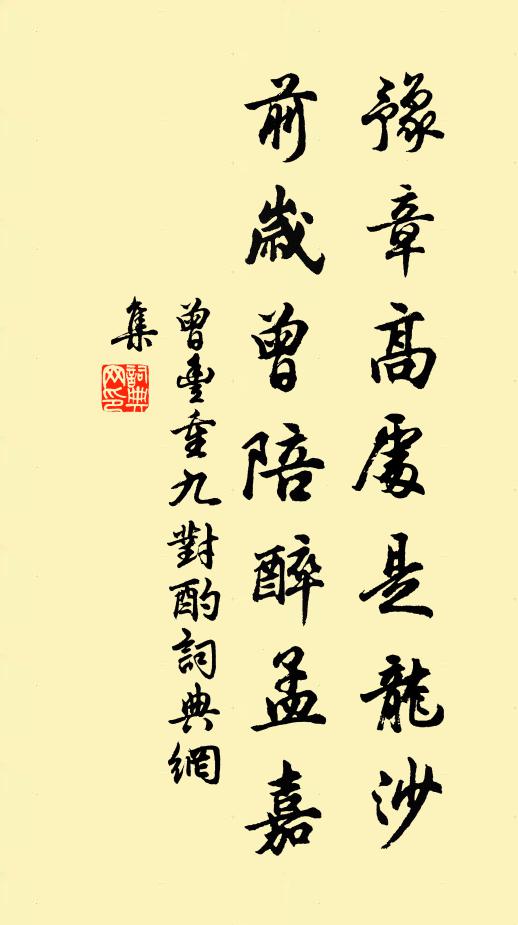 豫章高處是龍沙
前歲曾陪醉孟嘉
曾豐重九對酌詞典網
集
詞典
网印